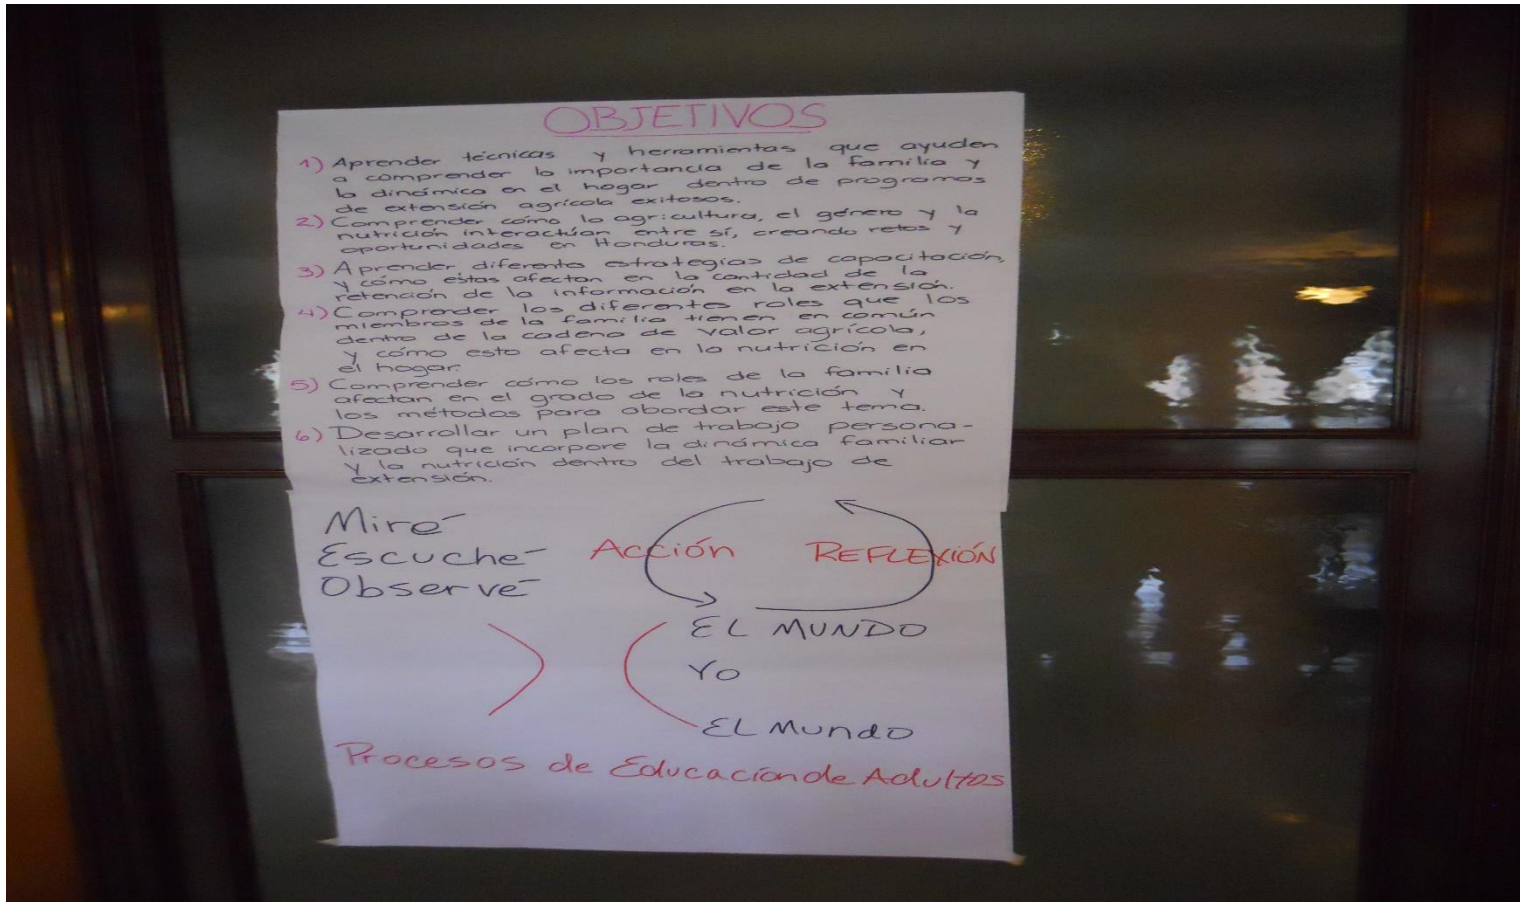 OBJETIVOS
1) Aprender técnicas y herramientas que ayuden
a comprender la importancia de la familia y
la dinámica en el hogar dentro de programas
de extensión agrícola exitosos.
2) Comprender cómo la agricultura, el género y la
nutrición interactúan entre sí, creando retos y
oportunidades en Honduras.
3) Aprender diferentes estrategias de capacitación,
y cómo éstas afectan en la cantidad de la
retención de la información en la extensión.
4) Comprender los diferentes roles que los
miembros de la familia tienen en común
dentro de la cadena de valor agrícola,
y cómo esto afecta en la nutrición en
el hogar.
5) Comprender cómo los roles de la familia
afectan en el grado de la nutrición y
los métodos para abordar este tema.
6) Desarrollar un plan de trabajo persona-
lizado que incorpore la dinámica familiar
y la nutrición dentro del trabajo de
extensión.
Mire-
Escuche-
Observe-
Acción REFLEXIÓN
EL MUNDO
Yo
EL Mundo
Procesos de Educación de Adultos